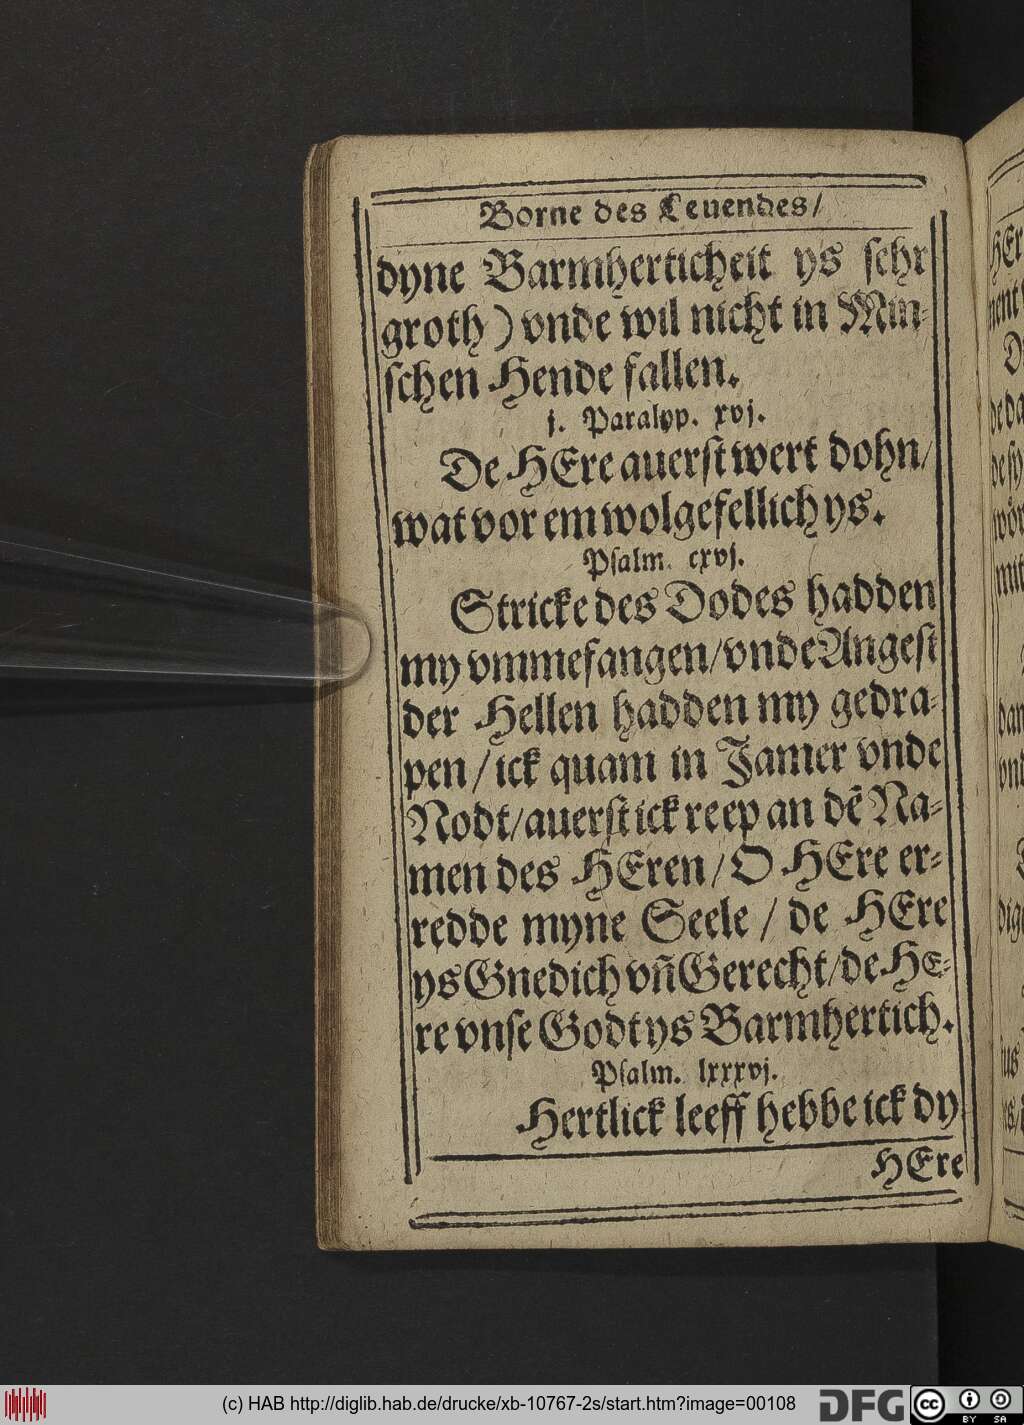 Borne des Leuendes/
dyne Barmherticheit ys sehr
groth) vnde wil nicht in Min-
schen Hende fallen.
j. Paralyp. xvj.
De HEre auerst wert dohn/
wat vor em wolgefellich ys.
Psalm. cxvj.
Stricke des Dodes hadden
my vmmefangen/vnde Angest
der Hellen hadden my gedra-
pen/ick quam in Jamer vnde
Nodt/auerst ick reep an dē Na-
men des HEren/O HEre er-
redde myne Seele/de HEre
ys Gnedich vñ Gerecht/de HE-
re vnse Godt ys Barmhertich.
Psalm. lxxxvj.
Hertlick leeff hebbe ick dy
HEre
(c) HAB http://diglib.hab.de/drucke/xb-10767-2s/start.htm?image=00108
DFG
cc BY SA